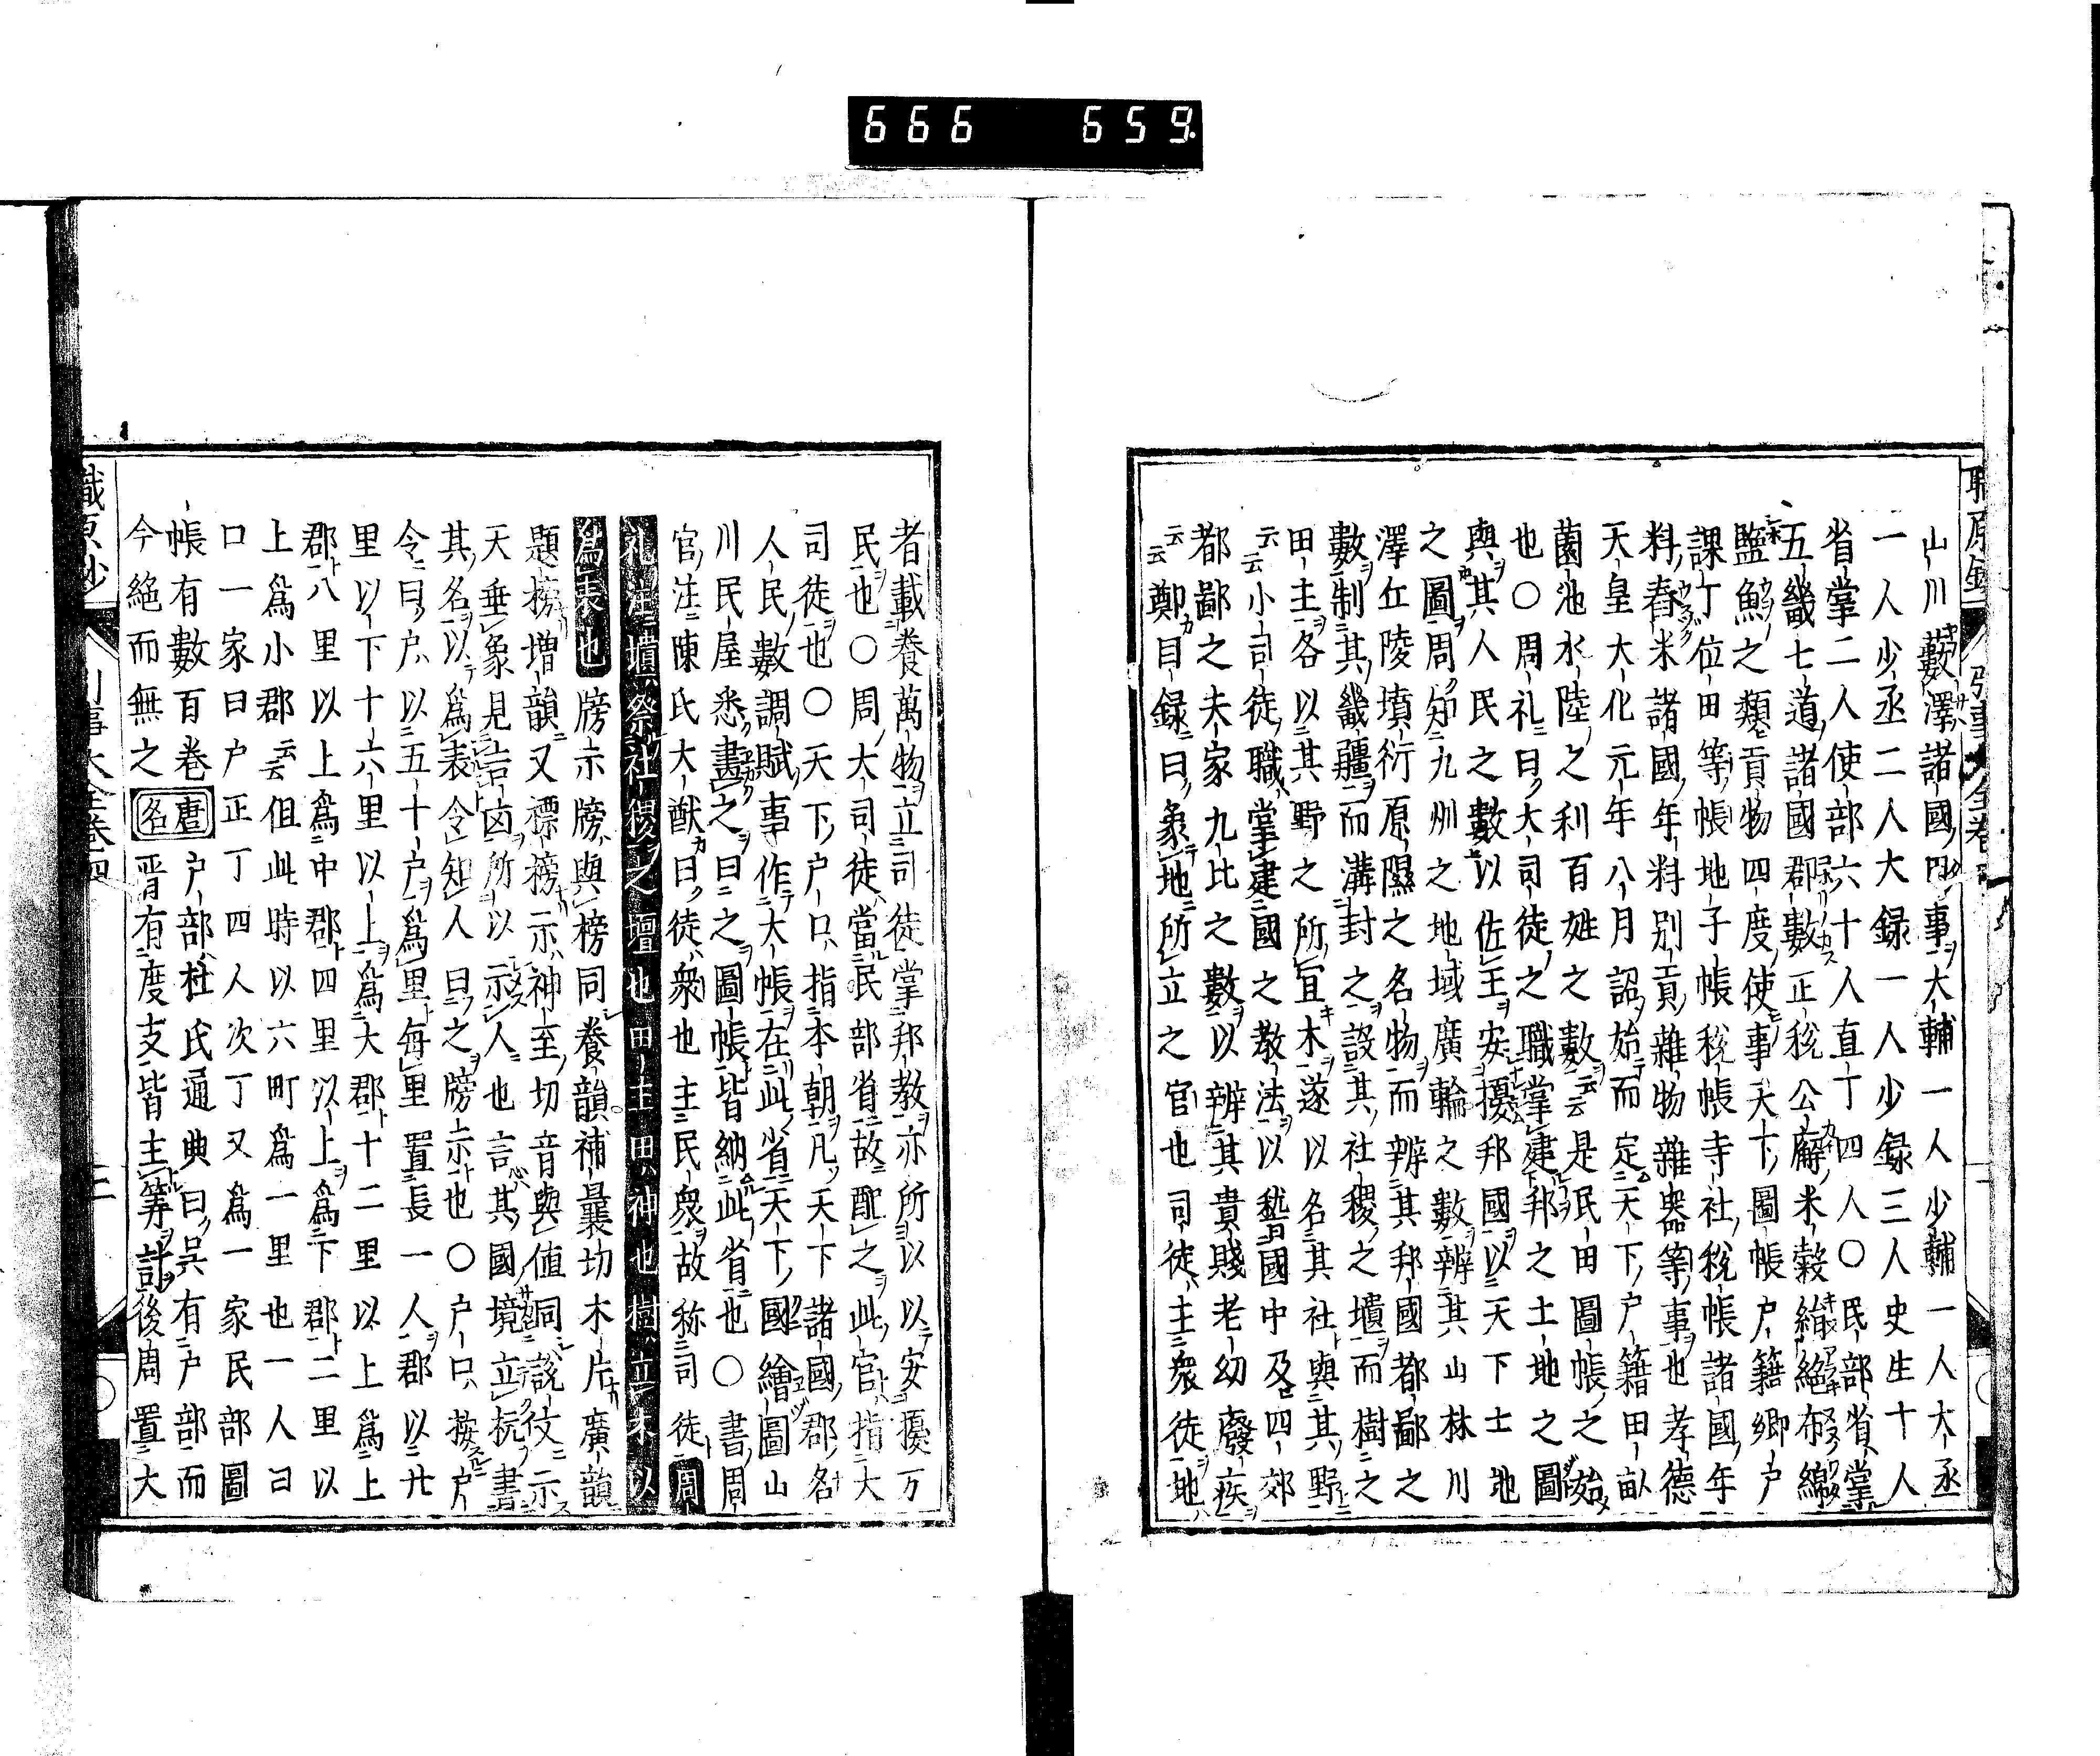 666 659
山川藪澤諸國田事大輔一人少輔一人大丞
一人少丞二人大録一人少録三人史生十人
省掌二人使部六十人直丁四人〇民部省掌
五畿七道諸國郡數正税公廨米穀絹絁布綿
鹽魚之類貢物四度使事天下圖帳户籍郷户
課丁位田等帳地子帳税帳寺社税帳諸國年
料舂米諸國年料別貢雜物雜器等事也孝德
天皇大化元年八月詔始而定天下户籍田畝
薗池水陸之利百姓之數云云是民田圖帳之始
也〇周礼曰大司徒之職掌建邦之土地之圖
與其人民之數以佐王安擾邦國以天下土地
之圖周知九州之地域廣輪之數辨其山林川
澤丘陵墳衍原隰之名物而辨其邦國都鄙之
數制其畿疆而溝封之設其社稷之壝而樹之
田主各以其野之所宜木遂以名其社與其野
云云小司徒職掌建國之教法以稽國中及四郊
都鄙之夫家九比之數以辨其貴賤老幼廢疾
云云鄭目録曰象地所立之官也司徒主衆徒地
者載養萬物立司徒掌邦教亦所以安擾万
民也〇周大司徒當民部省故配之此官指大
司徒也〇天下户口指本朝凡天下諸國郡名
人民數調賦事作大帳在此省天下國繪圖山
川民屋悉畫之曰之圖帳皆納此省也〇書周
官注陳氏大猷曰徒衆也主民衆故称司徒周
礼注壝祭社稷之壇也田主田神也樹立木以
爲表也 牓示牓與榜同養韻補曩切木片廣韻
題榜増韻又標榜示神至切音與値同説文示
天垂象見吉凶所以示人也言其國境立杭書
其名以爲表令知人曰之牓示也〇户口按户
令曰户以五十户爲里毎里置長一人郡以廿
里以下十六里以上爲大郡十二里以上爲上
郡八里以上爲中郡四里以上爲下郡二里以
上爲小郡云云但此時以六町爲一里也一人曰
口一家曰户正丁四人次丁又爲一家民部圖
帳有數百卷唐名户部杜氏通典曰呉有户部而
今絶而無之 晋有度支皆主等計後周置大